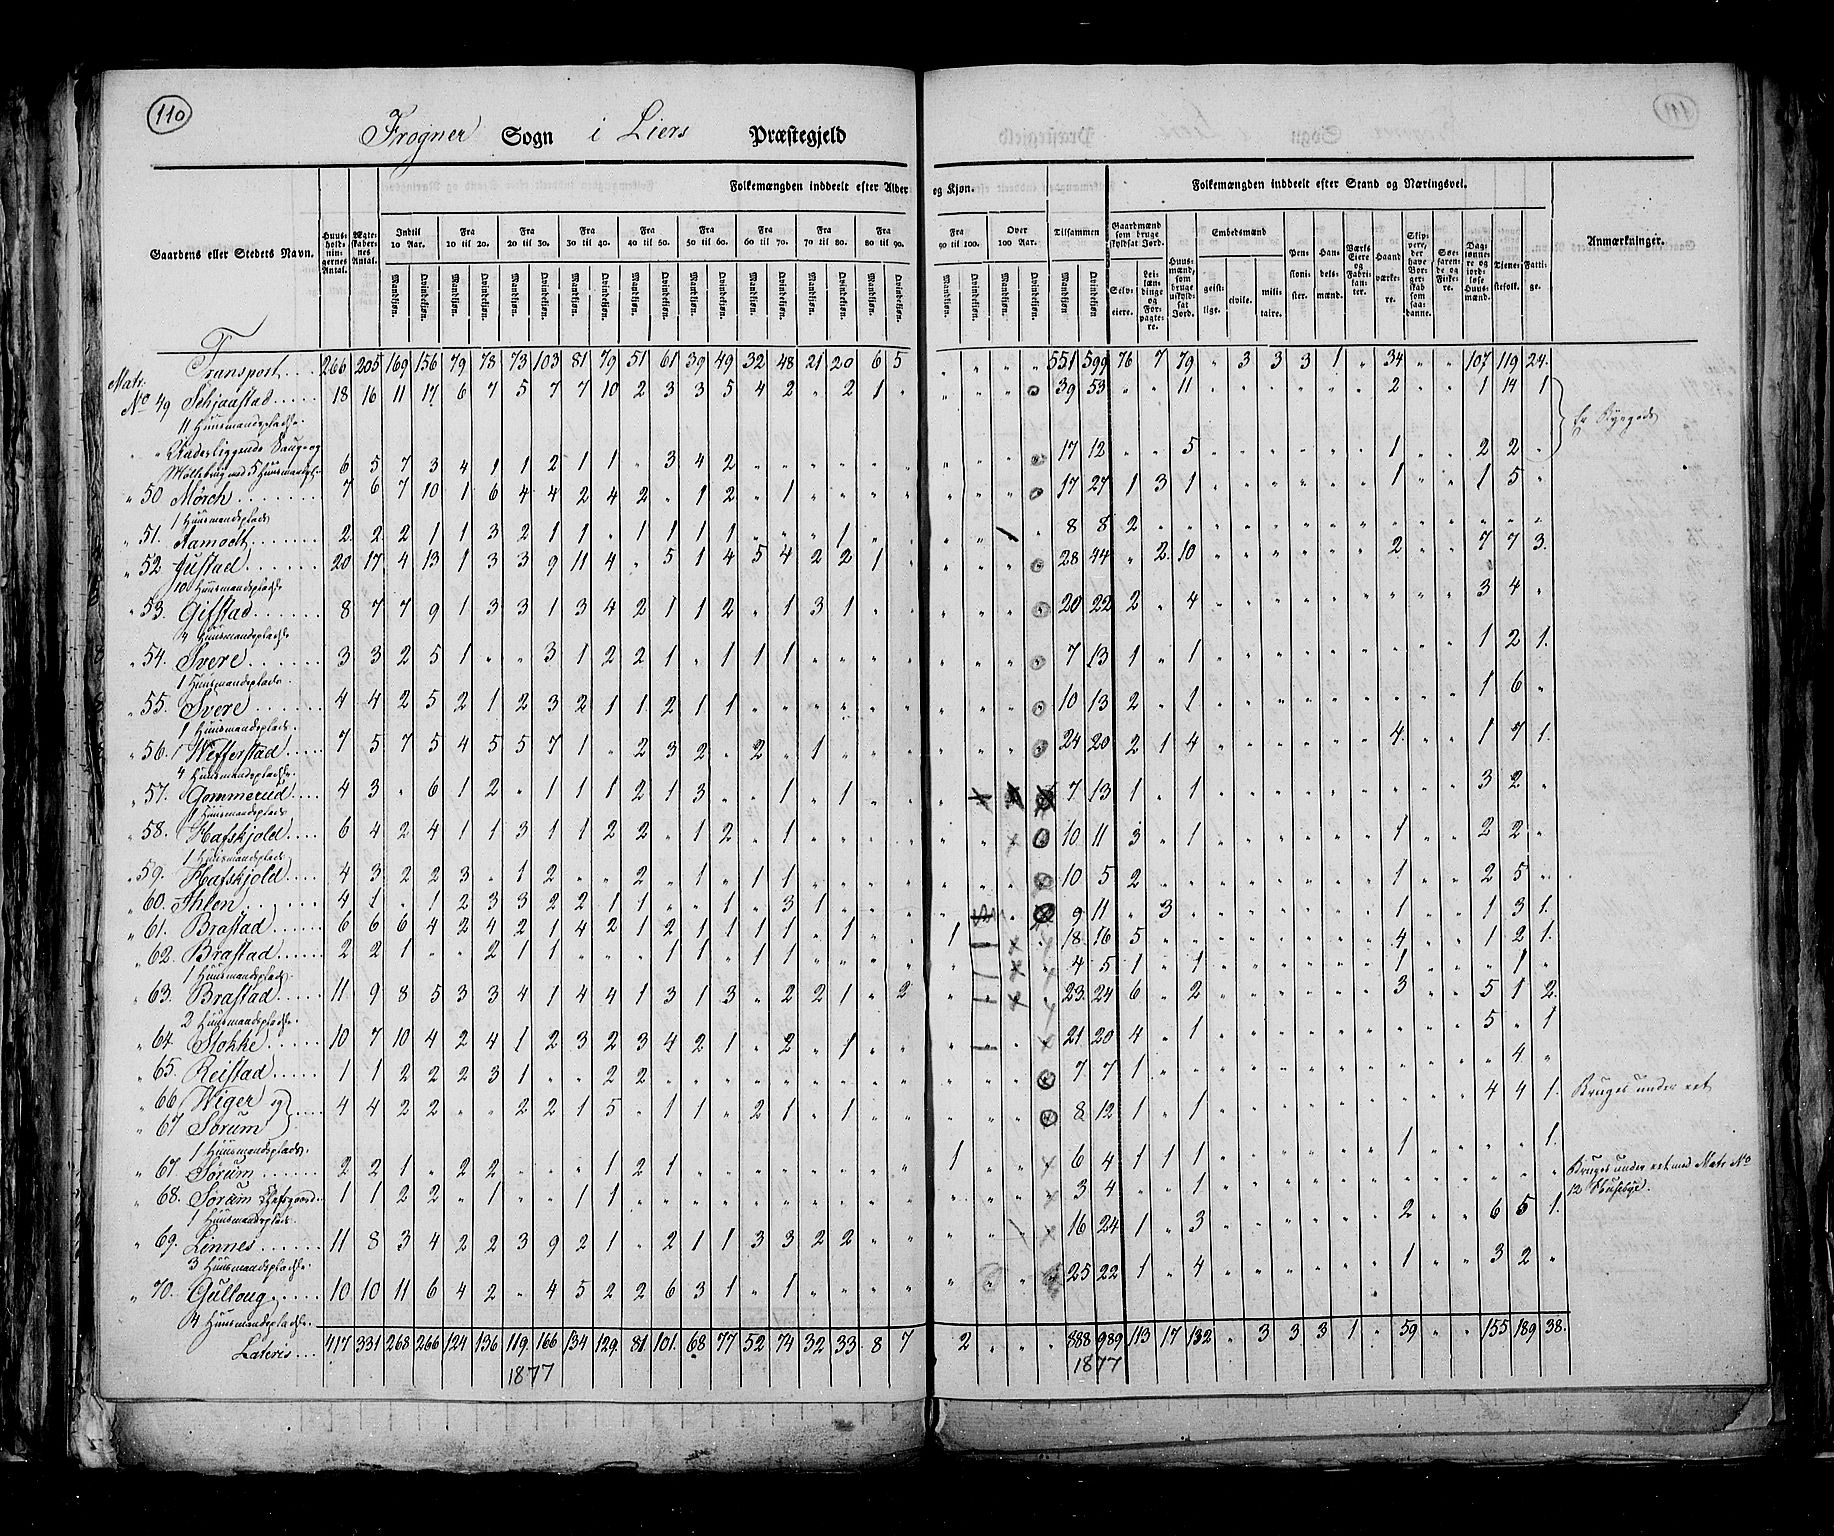 110
111
Frogner Sogn i Liers Præstegjeld
Folkemængden inddeelt efter Alder og Kjøn.
Folkemængden inddeelt efter Stand og Næringsvei.
Gaardens eller Stedets Navn.
Huusholdningernes Antal.
Ægteskabernes Antal.
Indtil 10 Aar.
Fra 10 til 20.
Fra 20 til 30.
Fra 30 til 40.
Fra 40 til 50.
Fra 50 til 60.
Fra 60 til 70.
Fra 70 til 80.
Fra 80 til 90.
Fra 90 til 100.
Over 100 Aar.
Tilsammen
Mandkjøn. Qvindekjøn.
Gaardmænd som bruge skyldsat Jord.
Selveiere. Leilændinge og Forpagtere.
Huusmænd, som bruge uskyldsat Jord.
Embedsmænd
geistlige. civile. militaire.
Pensionister.
Handelsmænd.
Værks Eiere og Fabrikanter.
Haandværkere.
Skippere, der have Borgerskab som saadanne.
Søefarende og Fiskere.
Daglønnere og jordløse Huusmænd.
Tjenestefolk.
Fattige.
Anmærkninger.
Transport 266 205 169 156 79 78 73 103 81 79 51 61 39 49 32 48 21 20 6 5 " " " " 551 599 76 7 79 " 3 3 3 1 " 34 " " 107 119 24
Matr. No 49 Schjaastad 18 16 11 17 6 7 5 7 7 10 2 3 3 5 4 2 " 2 1 " 39 53 " " 11 2 1 14 1
11 Huusmandspladse.
Er Kygods
Underliggende Saug og
Møllebrug med 5 Huusmandspl. 6 5 7 3 4 1 1 2 1 1 " 3 4 2 17 12 " " 5 1 2 2 "
" 50 Mørch 7 6 7 10 1 6 4 4 2 4 2 " 1 2 " 1 17 27 1 3 1 1 1 5 "
1 Huusmandsplads
" 51. Ramodt 2 2 2 1 1 3 2 1 1 " 1 1 1 1 " " " 1 8 8 2
" 52 Justad 20 17 4 13 1 3 3 9 11 4 " 5 1 4 5 4 2 2 1 " 28 44 " 2 10 2 7 7 3
10 Huusmandspladse
" 53. Gifstad 8 7 7 9 1 3 3 1 3 4 2 1 1 2 " 1 3 1 20 22 2 " 4 3 4 "
4 Huusmandspladse
" 54. Svere 3 3 2 5 1 " " 3 1 2 2 1 " 1 1 1 7 13 1 " 1 1 2 1.
1 Huusmandsplads.
" 55. Svere 4 4 2 5 2 1 2 3 2 1 1 2 1 1 10 13 2 " 1 1 6 "
1 Huusmandsplads
" 56. Wefferstad 7 5 7 5 4 5 5 7 1 " 2 3 2 " 2 " 1 24 20 2 1 4 4 1 7 1.
4 Huusmandspladse.
" 57. Gommerud 4 3 " 6 1 2 " 1 1 1 2 1 3 " " 1 " 1 7 13 1 " 1 3 2 "
1 Huusmandsplads
" 58. Hafskjold 6 4 2 4 1 1 3 1 1 2 2 " 1 2 " 1 10 11 3 " 1 1 2 2 "
1 Huusmandsplads
" 59. Hafskjold 4 3 2 2 3 " 1 2 " " 2 " 1 " 1 1 10 5 2 1 2 5 "
" 60. Ihlen 4 1 " 1 2 3 3 2 2 1 1 " " 1 " 3 1 9 11 " 3 1 1 3 1.
" 61. Brastad 6 6 6 4 2 4 2 1 4 2 1 2 1 1 1 1 " 1 " " 1 18 16 5 4 1 2 1.
" 62. Brastad 2 2 1 " " 2 1 1 " " " 1 1 " 1 1 4 5 1 " 1 1 " 1 "
1 Huusmandsplads.
" 63. Brastad 11 9 8 5 3 3 4 1 4 4 1 3 1 3 " 2 2 1 " 2 23 24 6 " 2 3 5 1 2.
2 Huusmandspladse.
" 64. Stokke 10 7 10 4 2 4 1 2 3 2 3 4 2 1 " 2 " 1 21 20 4 " 1 5 " 1
" 65. Reistad 1 1 2 2 2 3 1 " " 2 2 7 7 1 " 4 "
" 66 Wiger og 4 4 2 2 " " 2 2 1 5 " 1 1 " 2 1 " 1 8 12 1 " 1 4 4 1. Bruges under eet
" 67 Sørum
1 Huusmandsplads.
" 67. Sørum 2 2 1 " 2 2 " " " 1 2 1 1 6 4 1 1 1 1 1.
" 68. Sørum 1 1 2 2 " 1 " " 1 1 3 4 " " 1 Bruges under eet med Matr No 12 Husebye.
1 Huusmandsplads.
" 69. Linnes 11 8 3 4 2 2 3 9 2 1 " 2 1 1 3 3 2 2 16 24 1 " 3 2 6 5 1.
3 Huusmandspladse.
" 70. Gulloug 10 10 11 6 4 2 " 4 5 2 2 6 3 1 " 1 25 22 1 " 4 1 3 2 "
4 Huusmandspladse.
Lateris 417 331 268 266 124 136 119 166 134 129 81 101 68 77 52 74 32 33 8 7 2 " " " 888 989 113 17 132 " 3 3 3 1 " 59 " " 155 189 38.
1877
1877